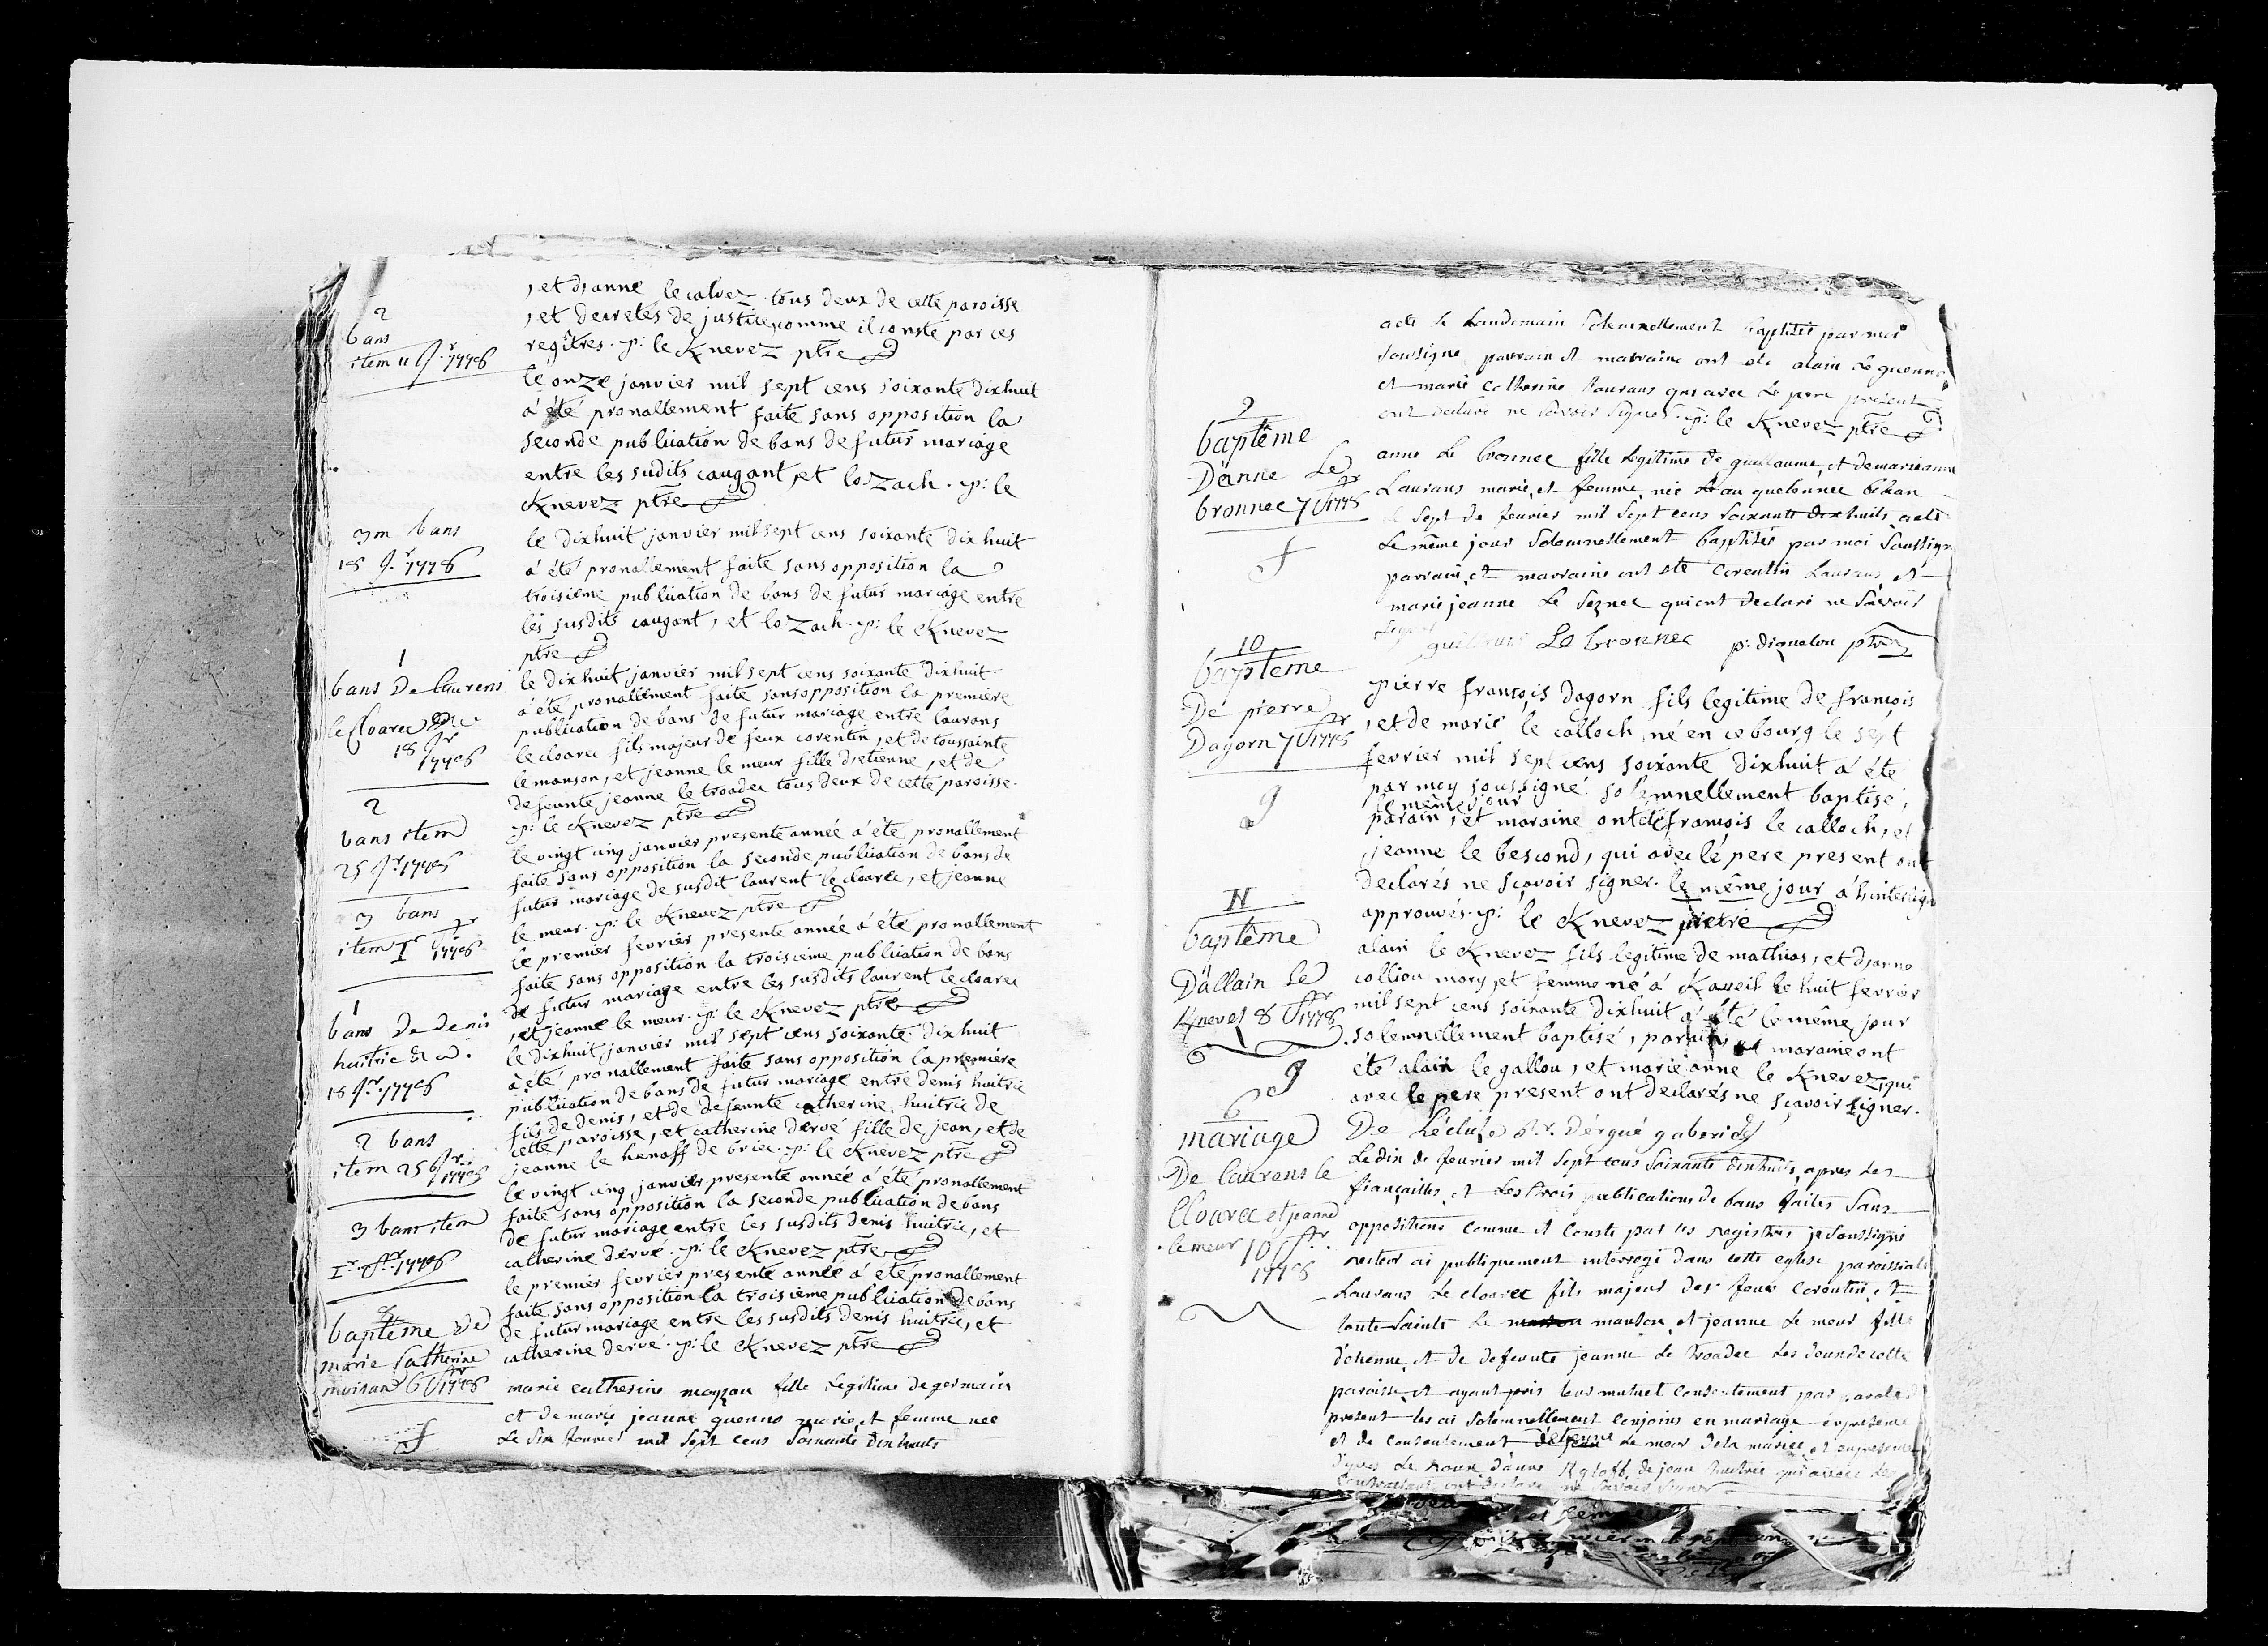 , et d'anne le calvez tous deux de cette paroisse
, et decretés de justice, comme il conste par ces
regîtres. p: le Knevez ptre
2
bans
item 11 jr. 1778
le onze janvier mil sept cens soixante dixhuit
à été pronallement faite sans opposition la
seconde publication de bans de futur mariage
entre les sudits caugant, et loZach. p: le
Knevez ptre
3m bans
18 jr. 1778
le dixhuit janvier mil sept cens soixante dix huit
à été pronallement faite sans opposition la
troisieme publication de bans de futur mariage entre
les susdits caugant, et loZach. p: le Knevez
ptre
1
bans De laurens
le Cloarec &c
18 jr
1778
le dixhuit janvier mil sept cens soixante dixhuit
à été pronallement faite sans opposition la premiere
publication de bans de futur mariage entre laurans
le cloarec fils majeur de feux corentin, et de toussainte
le manson, et jeanne le meur fille d'etienne, et de
defeunte jeanne le troadec tous deux de cette paroisse.
p: le Knevez ptre
2
bans item
25 jr. 1778
le vingt cinq janvier presente année à été pronallement
faite sans opposition la seconde publication de bans de
futur mariage de susdit laurent le cloarec, et jeanne
le meur. p: le Knevez ptre
3 bans
item Ir fr 1778
le premier fevrier presente année à été pronallement
faite sans opposition la troisieme publication de bans
de futur mariage entre les susdits laurent le cloarec
, et jeanne le meur. p: le Knevez ptre
1
bans De denis
huitric &c.
18 jr. 1778
le dixhuit janvier mil sept cens soixante dix huit
à été pronallement faite sans opposition la premiere
publication de bans de futur mariage entre denis huitric
fils de denis, et de defeunte catherine huitric de
cette paroisse, et catherine dervé fille de jean, et de
jeanne le henaff de briec. p: le Knevez ptre
2 bans
item 25 jr. 1778
le vingt cinq janvier presente année à été pronallement
faite sans opposition la seconde publication de bans
de futur mariage entre les susdits denis huitric, et
catherine dervé. p: le Knevez ptre
3 bans item
Ir. fr. 1778
le premier fevrier presente année à été pronallement
faite sans opposition la troisieme publication de bans
de futur mariage entre les susdits denis huitric, et
catherine dervé. p: le Knevez ptre
8
baptême De
marie Catherine
moisan 6 fr 1778
f
marie catherine moyzan fille legitime de germain
et de marie jeanne guenno marié, et femme née
Le six fevrier mil sept cens soixante dixhuits
acte le Landemain solemnellement baptisée par moi
soussigné parrain et marraine ont été alain Le guenno
et marie catherine Laurans qui avec Le pere présent
ont declaré ne savoir signer. p: le Knevez ptre
9
baptême
D'anne Le
bronnec 7 fr 1778
f
anne Le bronnec fille Legitime de guillaume, et demarieanne
Laurans marié, et femme, née au quelennec bihan
Le sept de fevrier mil sept cens soixante dixhuits acté
Le même jour solemnellement baptisée par moi soussigné
parrain, et marraine ont été corentin Laurans, et
marie jeanne Le seznec qui ont declaré ne savoir
signer
guillaume Le bronnec p: diquelou ptre
10
baptême
De pierre
Dagorn 7 fr 1778
g
pierre françois dagorn fils legitime de françois
, et de marie le calloch, né en ce bourg le sept
fevrier mil sept cens soixante dixhuit à été
par moy soussigné solemnellement baptisé,
le même jour
parain, et maraine ont été françois le calloch, et
jeanne le bescond, qui avec lé pere present ont
declarés ne sçavoir signer. le même jour à l'hinterligne
approuvés. p: le Knevez pretre
11
baptême
D'allain Le
Knevet 8 fr 1778
g
alain le Knevez fils legitime de mathias, et d'anne
colliou mary, et femme né à Kaveil le huit fevrier
mil sept cens soixante dixhuit à été le même jour
solemnellement baptisé, parain, et maraine ont
été alain le gallou, et marie anne le Knevez, qui
avec le pere present ont declarés ne sçavoir signer.
De Lécluse Rr. d'ergué gaberic
6
mariage
De laurens le
Cloarec et jeanne
le meur 10 fr
1778
Le dix de fevrier mil sept cens soixante dixhuits, apres Les
fiançailles, et Les trois publications de bans faites sans
oppositions comme il conste par les registres, je soussigné
recteur ai publiquement interrogé dans cette eglise paroissiale
Laurans Le cloarec fils majeur des feux corentin, et
toute-sainte Le manson, et jeanne Le meur fille
d'etienne, et de defeunte jeanne Le troadec Les deux de cette
paroisse, et ayant pris leur mutuel consentement par paroles
present les ai solemnellement conjoins en mariage en presence
et de consentement d'etienne Le meur de la mariée, et en presence
d'yves Le Roux, d'anne Kgloff, de jean huitric qui avec Les
contractans ont declaré ne savoir signer